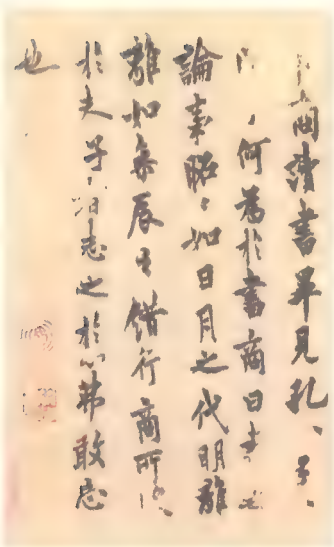 商讀書畢見孔、子、
何為於書商曰書
論事昭、如日月之代明離
離如參辰之錯行商所
於夫子 志之於心弗敢忘
也